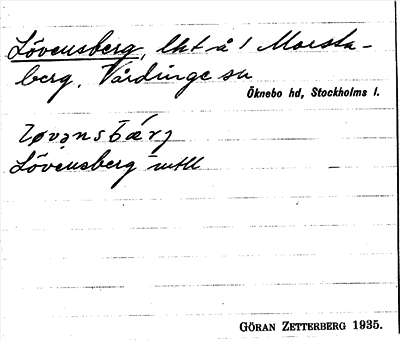 Lövensberg, lht å 1 Morsta-
berg, Vårdinge sn
Öknebo hd, Stockholms l.
Lövensberg
GÖRAN ZETTERBERG 1935.